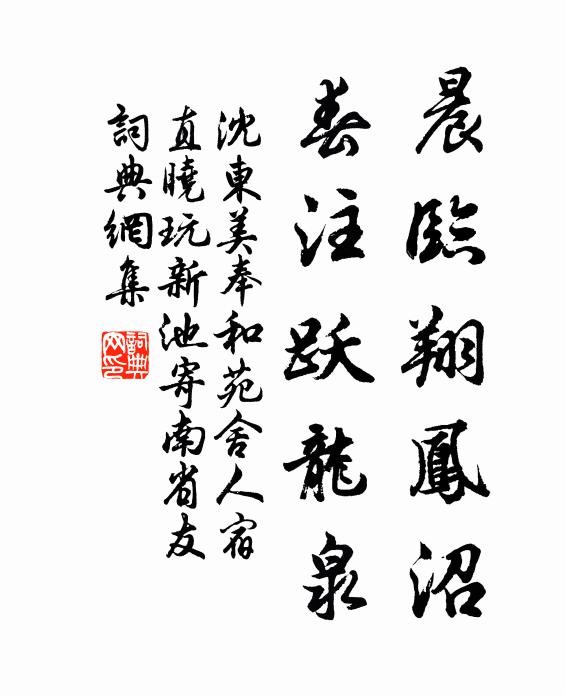 晨臨翔鳳沼
春注跃龍泉
沈東美奉和苑舍人宿
直曉玩新池寄南省友
詞典網集
詞典
网印